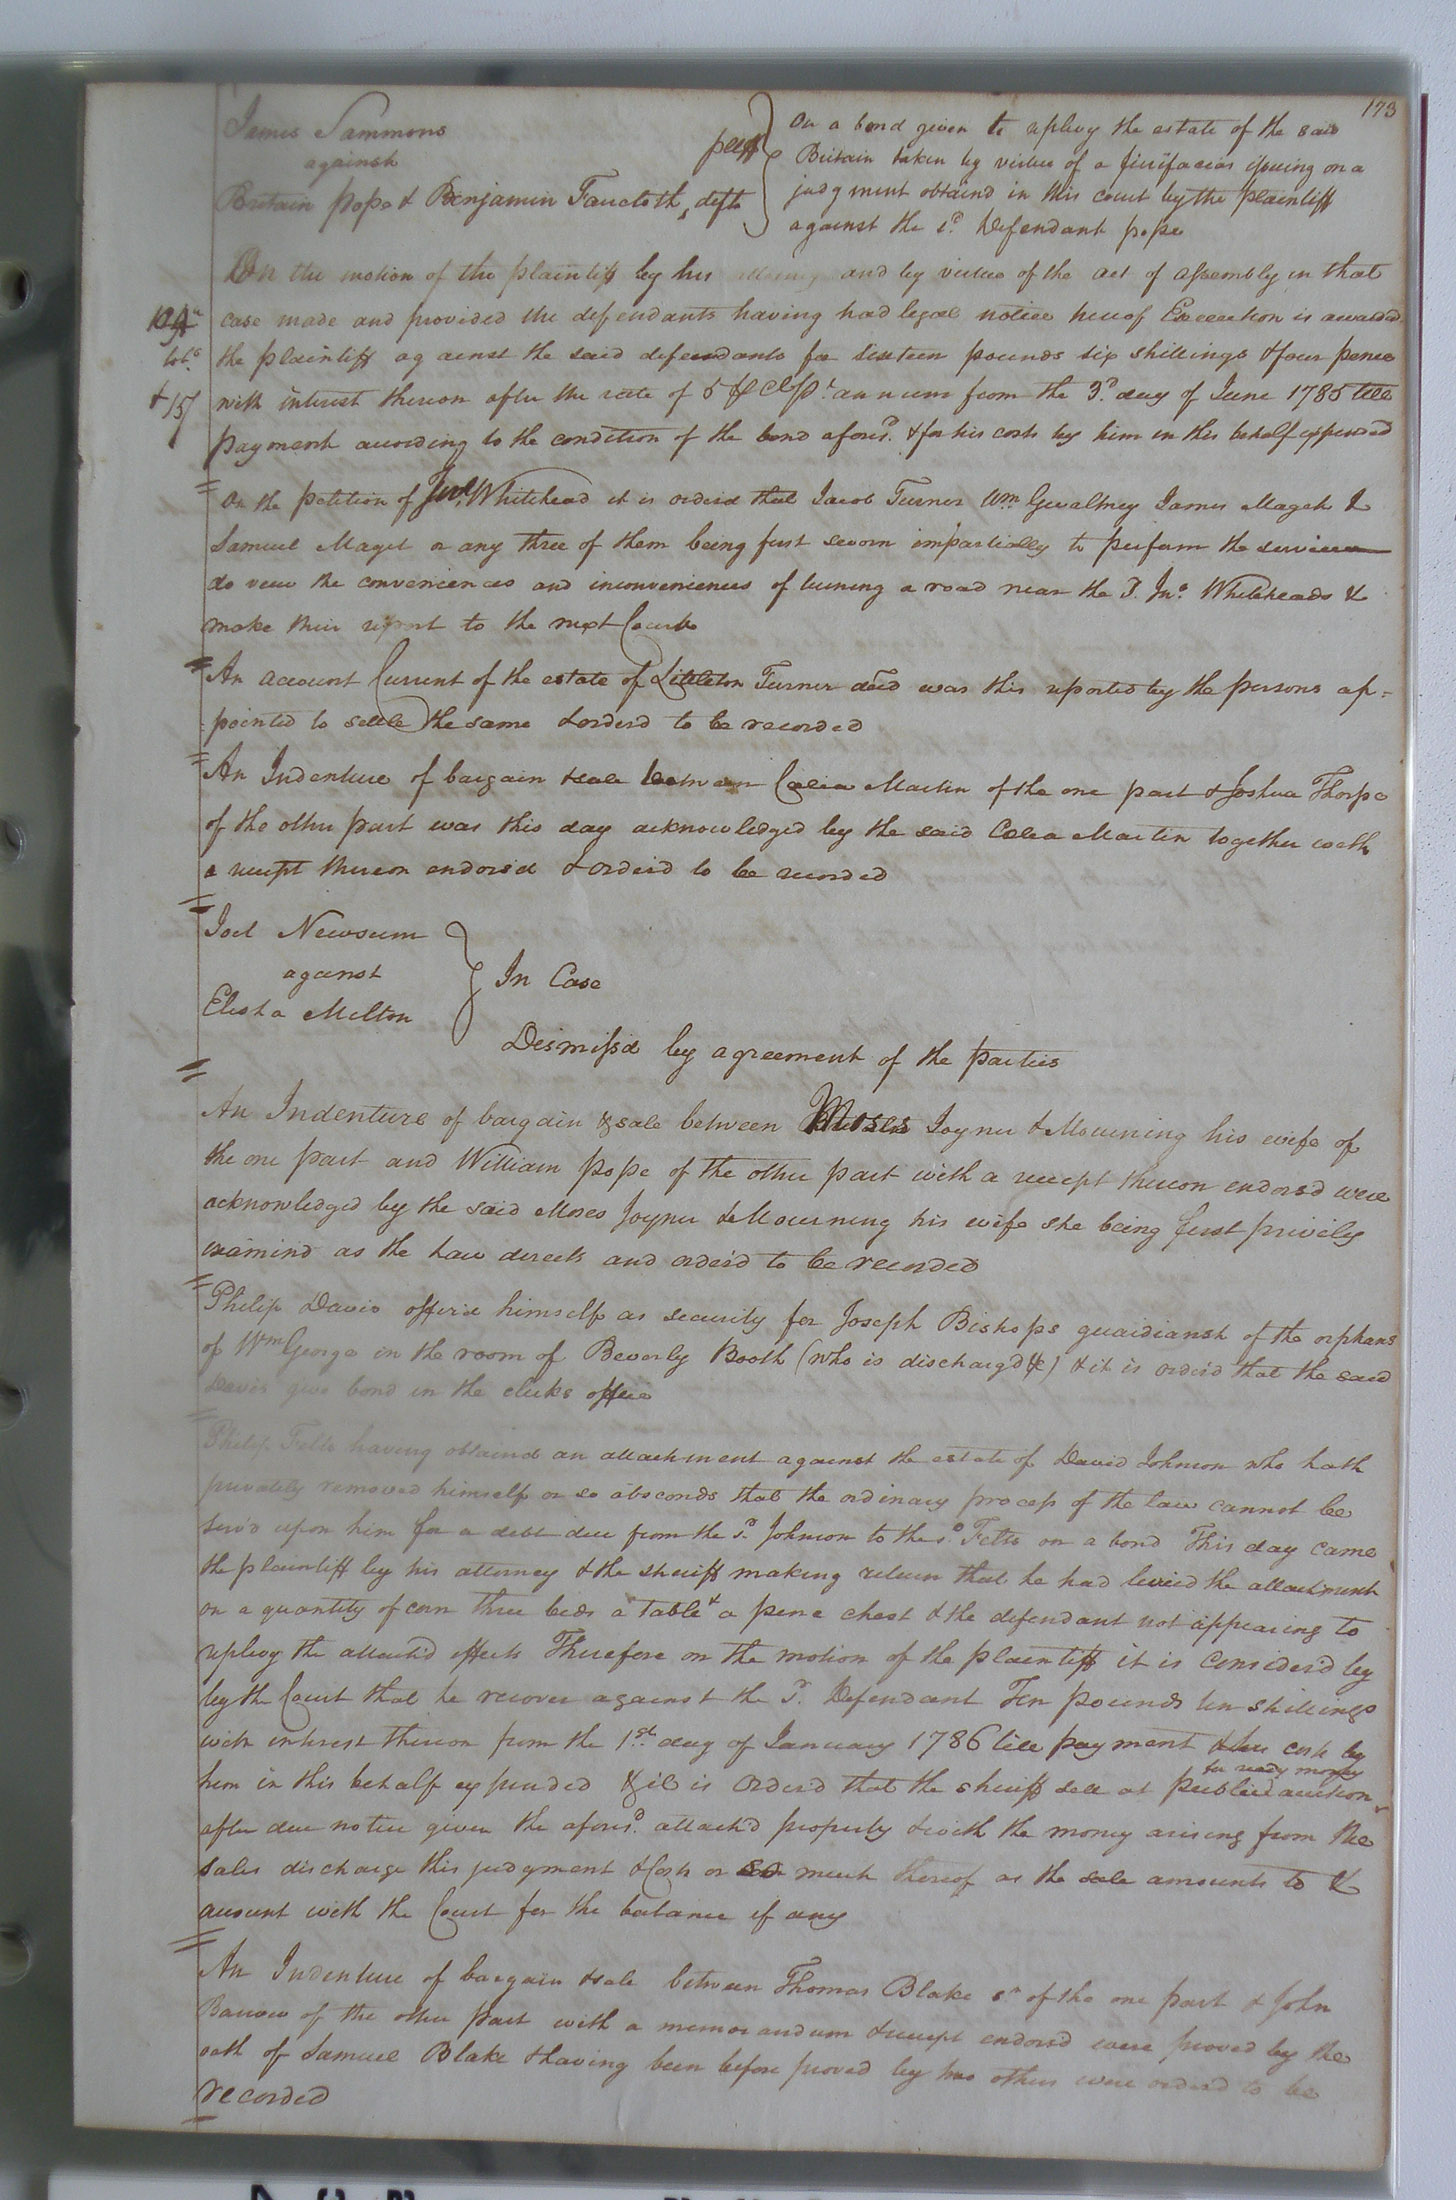 173
James Sammons plaff
against
Britain pope & Benjamin Faucloth, defts
On a bond given to replevy the estate of the said
Britain taken by virtue of a fierifacias issuing on a
judgment obtaind in this court by the plaintiff
against the sd. Defendant pope
On the motion of the plaintiff by his attorney and by virtue of the act of assembly in that
case made and provided the defendants having had legal notice hereof Execution is awarded
the plaintiff against the said defendants for sixteen pounds six shillings & four pence
with interest thereon after the rate of 5 annum from the 3d. day of June 1785 till
payment according to the condition of the bond aforesd. & for his costs by him in this behalf expended
tobo.
& 15/
On the petition of Jno. Whitehead it is orderd that Jacob Turner Wm Gwaltney James Maget &
Samuel Maget or any three of them being first sworn impartially to perform the service
do view the conveniences and inconveniences of turning a road near the sd. Jno. Whiteheads &
make their report to the next Court
An account Current of the estate of Littleton Turner decd was this reported by the persons ap=
pointed to settle the same & orderd to be recorded
An Indenture of bargain & sale between Celia Martin of the one part & Joshua Thorpe
of the other part was this day acknowledged by the said Celia Martin together with
a receipt thereon endorsd & orderd to be recorded
Joel Newsum
against
Elisha Melton
In Case
Dismissd by agreement of the parties
An Indenture of bargain & sale between Moses Joyner & Mourning his wife of
the one part and William pope of the other part with a receipt thereon endorsd were
acknowledged by the said Moses Joyner & Mourning his wife she being first privily
examind as the law directs and orderd to be recorded
Philip Davis offerd himself as security for Joseph Bishops guardiansh of the orphans
of Wm George in the room of Beverly Booth (who is dischargd &c) & it is orderd that the said
Davis give bond in the clerks office
Philip Felts having obtaind an attachment against the estate of David Johnson who hath
privately removed himself or so absconds that the ordinary process of the law cannot be
servd upon him for a debt due from the sd. Johnson to the sd. Felts on a bond This day came
the plaintiff by his attorney & the sheriff making return that he had levied the attachment
on a quantity of corn three beds a table & a pine chest & the defendant not appearing to
replevy the attachd effects Therefore on the motion of the plaintiff it is considerd by
by the Court that he recover against the sd. Defendant Ten pounds ten shillings
with interest thereon from the 1st. day of January 1786 till payment & his costs by
him in this behalf expended & it is Orderd that the sheriff sell at public auction
for ready money
after due notice given the aforesd. attachd property & with the money arising from the
sales discharge this judgment & Costs or so much thereof as the sale amounts to &
account with the Court for the balance if any
An Indenture of bargain & sale between Thomas Blake sr of the one part & John
Barrow of the other part with a memorandum & receipt endorsd were proved by the
oath of Samuel Blake & having been before proved by two others were orderd to be
recorded